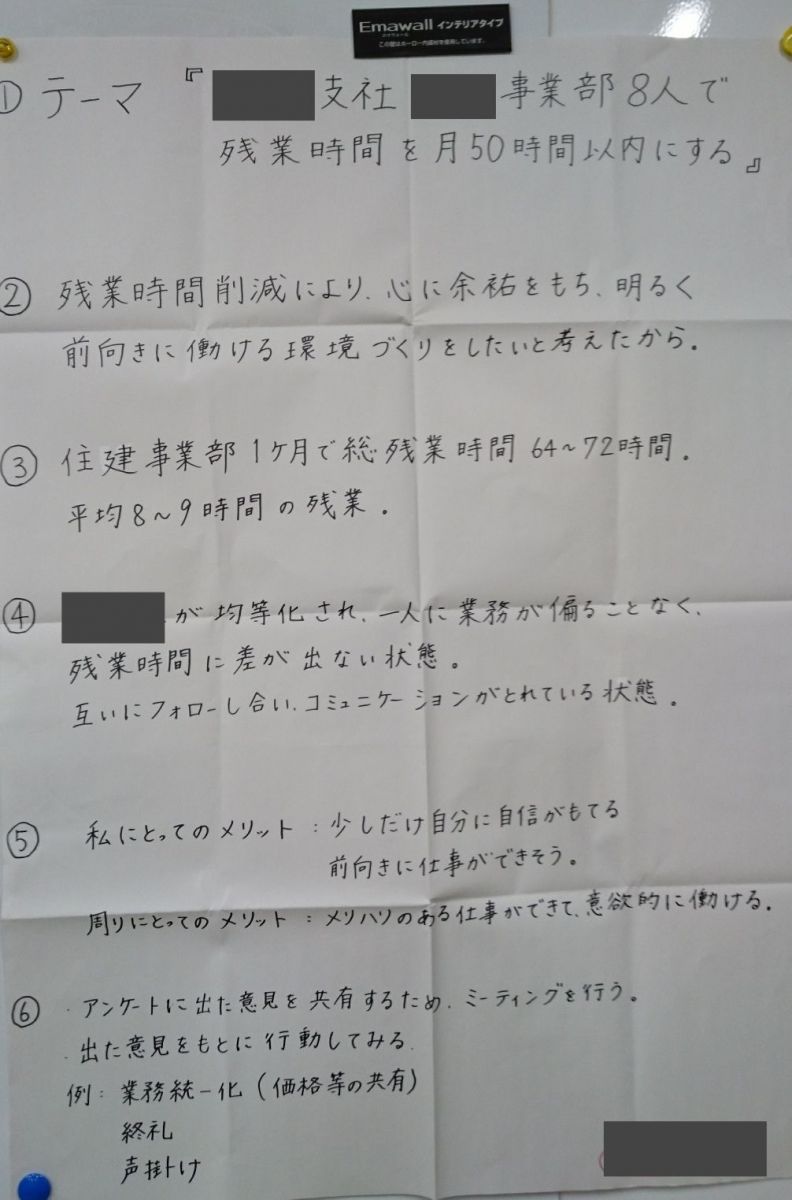 Emawall インテリアタイプ
エマウォール
この壁はホーロー内装材を使用しています。
① テーマ 『 支社 事業部 8人で
残業時間を月50時間以内にする』
② 残業時間削減により、心に余裕をもち、明るく
前向きに働ける環境づくりをしたいと考えたから。
③ 住建事業部1ヶ月で総残業時間 64~72時間。
平均8~9時間の残業。
④ が均等化され、一人に業務が偏ることなく、
残業時間に差が出ない状態。
互いにフォローし合い、コミュニケーションがとれている状態。
⑤ 私にとってのメリット:少しだけ自分に自信がもてる
前向きに仕事ができそう。
周りにとってのメリット:メリハリのある仕事ができて、意欲的に働ける。
⑥ ・アンケートに出た意見を共有するため、ミーティングを行う。
・出た意見をもとに行動してみる
例:業務統一化(価格等の共有)
終礼
声掛け